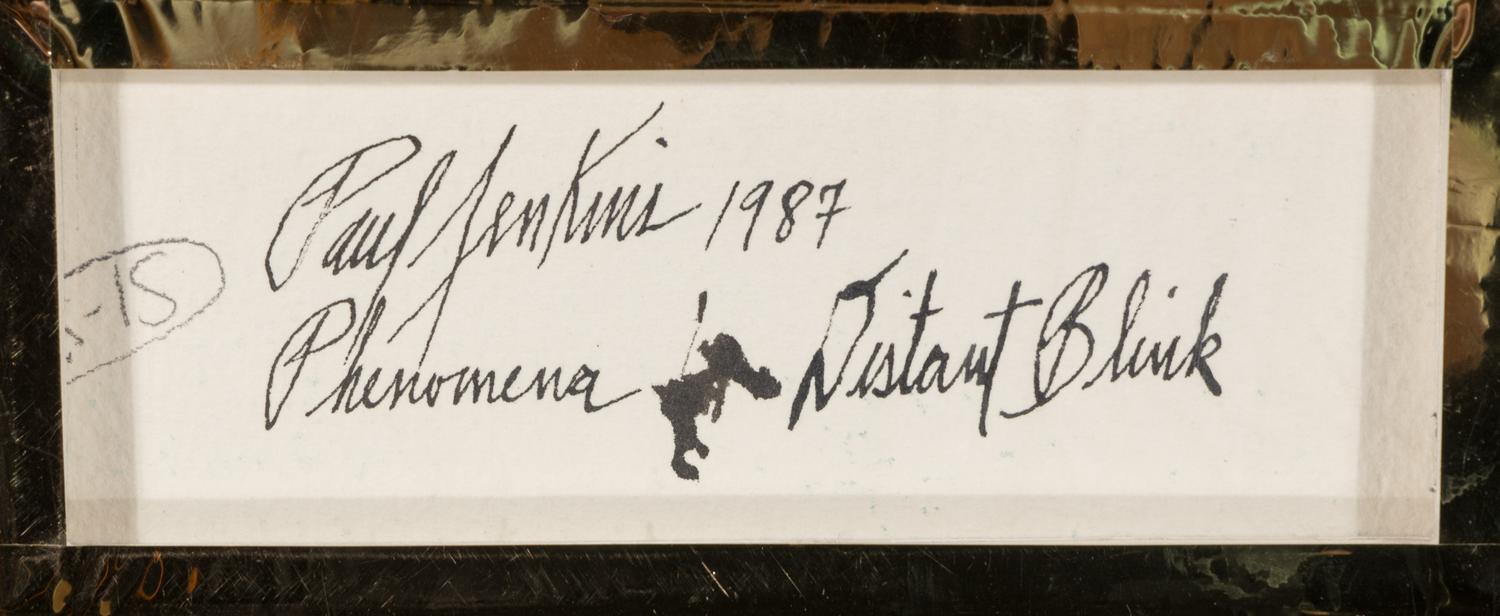 Paul Jenkins 1987
Phenomena Distant Blink